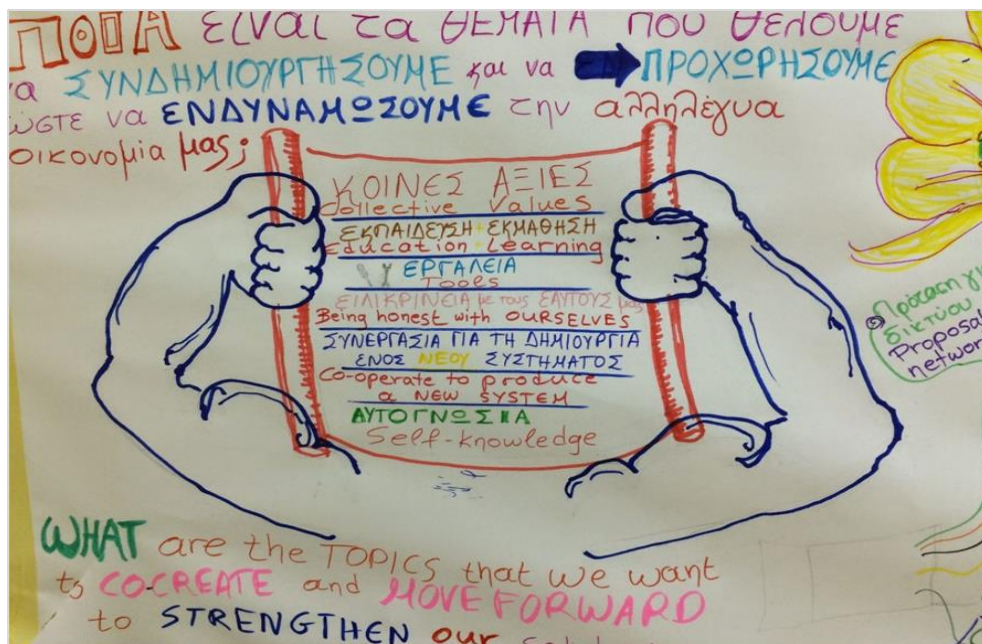 ΠΟΙΑ είναι τα ΘΕΜΑΤΑ που θέλουμε
να ΣΥΝΔΗΜΙΟΥΡΓΗΣΟΥΜΕ και να ΠΡΟΧΩΡΗΣΟΥΜΕ
ώστε να ΕΝΔΥΝΑΜΩΣΟΥΜΕ την αλληλέγγυα
οικονομία μας;
ΚΟΙΝΕΣ ΑΞΙΕΣ
Collective Values
ΕΚΠΑΙΔΕΥΣΗ + ΕΚΜΑΘΗΣΗ
Education + Learning
ΕΡΓΑΛΕΙΑ
Tools
ΕΙΛΙΚΡΙΝΕΙΑ με τους ΕΑΥΤΟΥΣ μας
Being honest with OURSELVES
ΣΥΝΕΡΓΑΣΙΑ ΓΙΑ ΤΗ ΔΗΜΙΟΥΡΓΙΑ
ΕΝΟΣ ΝΕΟΥ ΣΥΣΤΗΜΑΤΟΣ
Co-operate to produce
a NEW SYSTEM
ΑΥΤΟΓΝΩΣΙΑ
Self-knowledge
Πρόταση
δικτύου
Proposal
network
WHAT are the TOPICS that we want
to CO-CREATE and MOVE FORWARD
to STRENGTHEN our